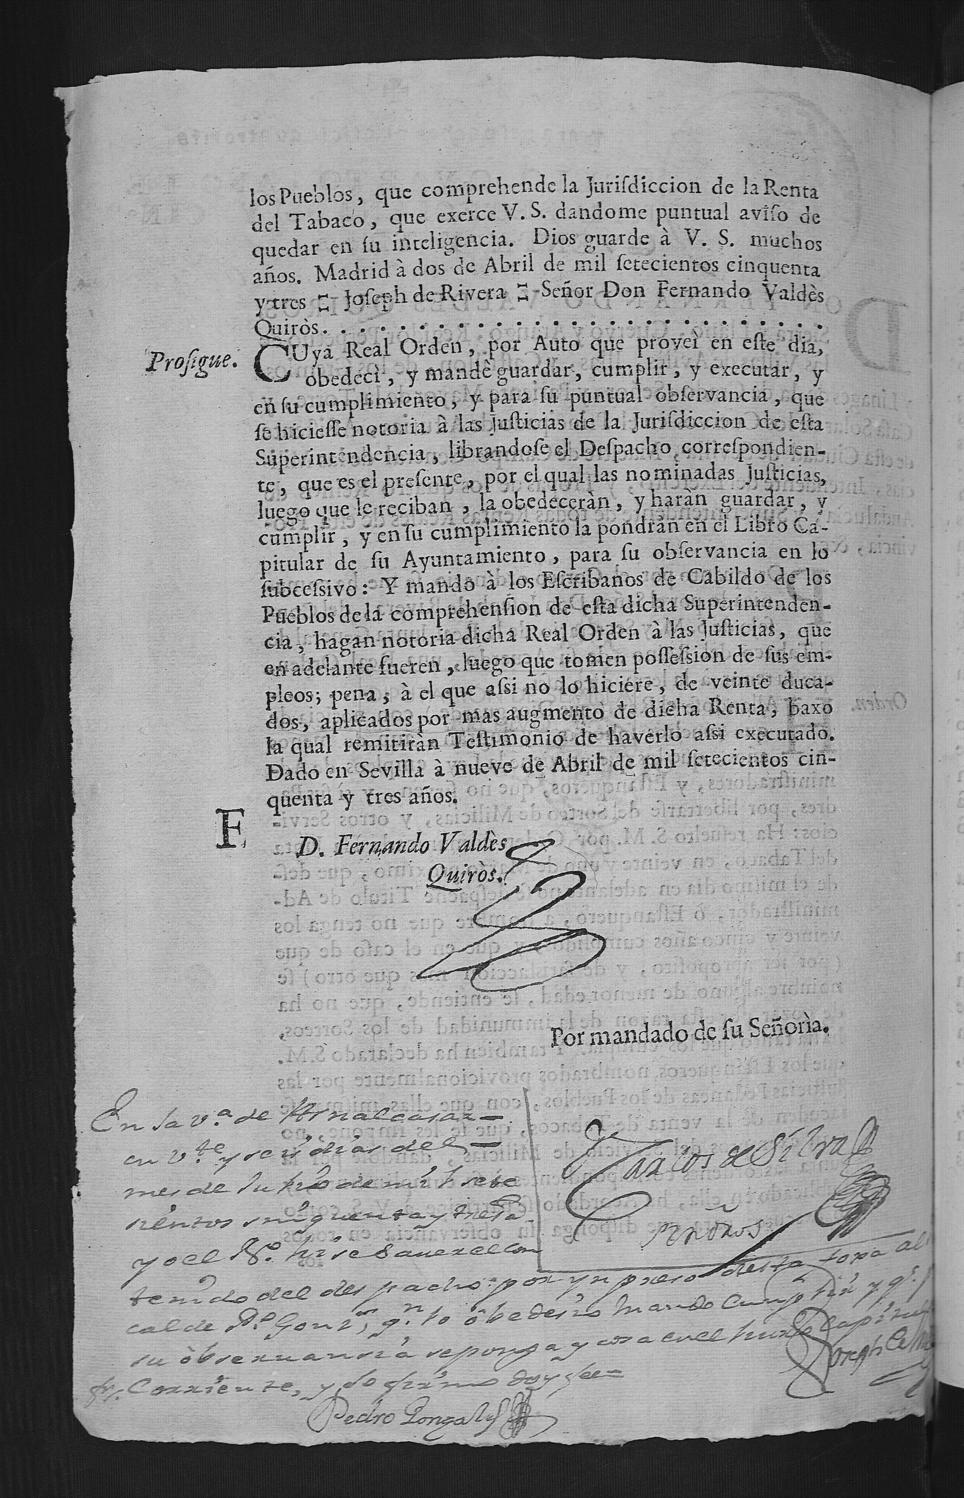 los Pueblos, que comprehende la Jurisdiccion de la Renta
del Tabaco, que exerce V. S. dandome puntual aviso de
quedar en su inteligencia. Dios guarde à V. S. muchos
años. Madrid à dos de Abril de mil setecientos cinquenta
y tres Ξ Joseph de Rivera Ξ Señor Don Fernando Valdès
Quiròs. . . . . . . . . . . . . . . . . . . . . . . . . . .
Prosigue. CUya Real Orden, por Auto que proveì en este dia,
obedecì, y mandè guardar, cumplir, y executar, y
en su cumplimiento, y para su puntual observancia, que
se hiciesse notoria à las Justicias de la Jurisdiccion de esta
Superintendencia, librandose el Despacho correspondien-
te, que es el presente, por el qual las nominadas Justicias,
luego que le reciban, la obedeceràn, y haràn guardar, y
cumplir, y en su cumplimiento la pondràn en el Libro Ca-
pitular de su Ayuntamiento, para su observancia en lo
subcessivo: Y mando à los Escribanos de Cabildo de los
Pueblos de la comprehension de esta dicha Superintenden-
cia, hagan notoria dicha Real Orden à las Justicias, que
en adelante fueren, luego que tomen possession de sus em-
pleos; pena, à el que assi no lo hiciere, de veinte duca-
dos, aplicados por mas augmento de dicha Renta, baxo
la qual remitiràn Testimonio de haverlo assi executado.
Dado en Sevilla à nueve de Abril de mil setecientos cin-
quenta y tres años.
F.
D. Fernando Valdès
Quiròs.
Por mandado de su Señorìa.
En la v.ª de Aznalcasar
en v.te y seis dias del
mes de Junio de mil sete
sientos sinquenta y tres
y o el
tenido del despacho por ynpreso desta
calde D.n Gonz. q.n lo obedesio mando Cumplir y q.
su obseruansia se ponga y cosa en el
Corriente, y lo firmo doy fee
Carlos de Silva
Pedro Gonzales